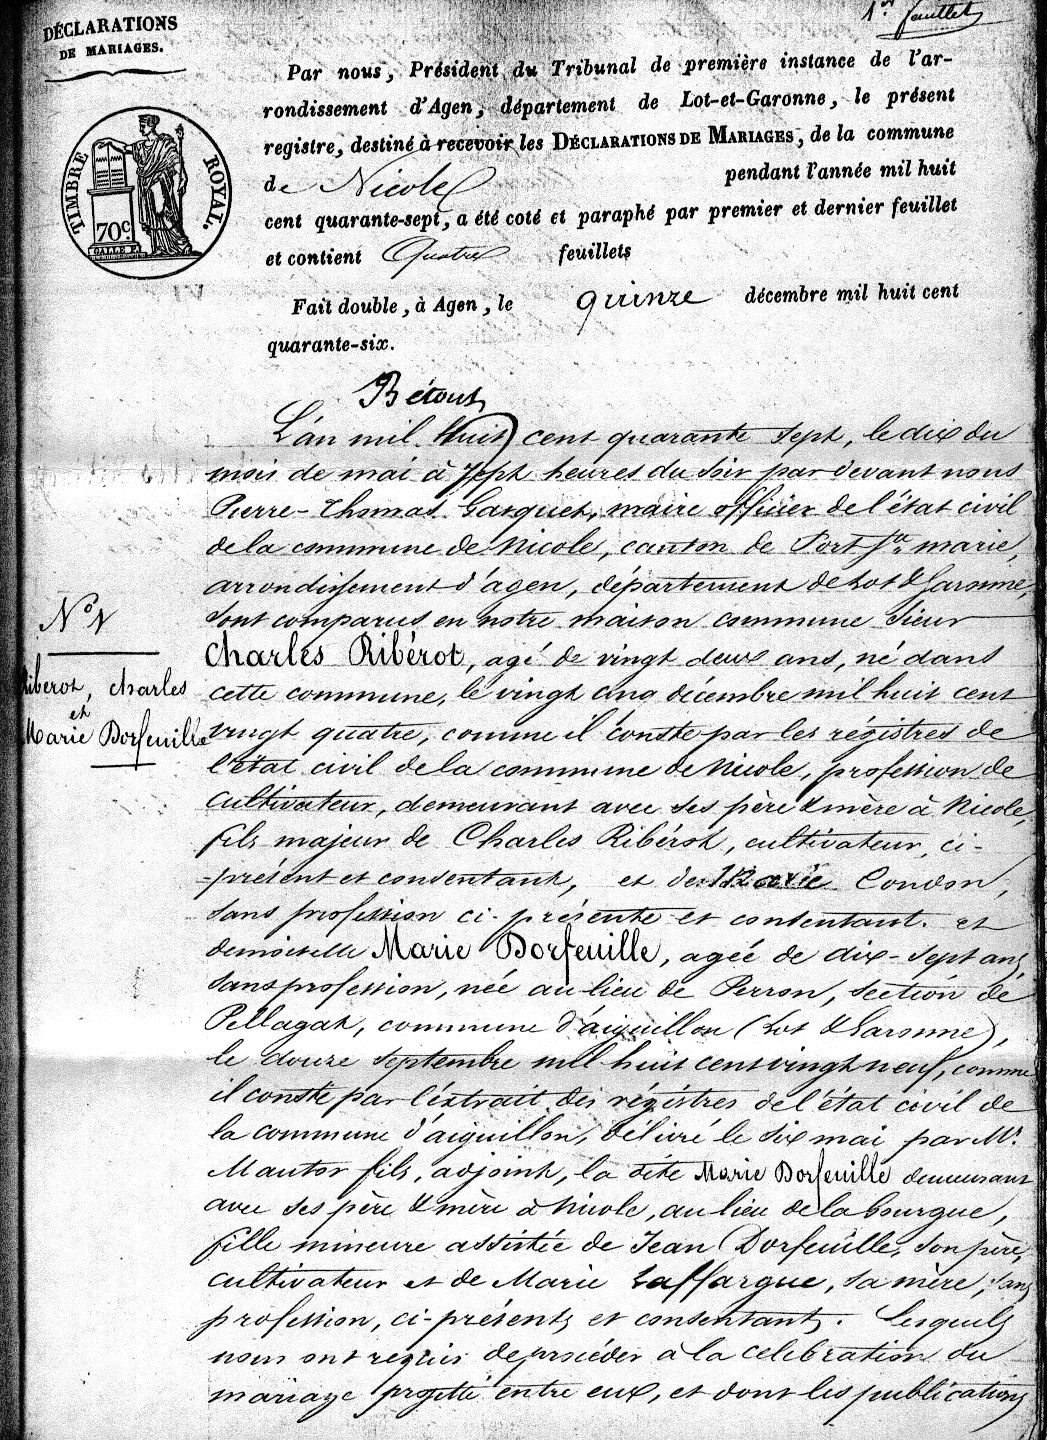 DÉCLARATIONS
DE MARIAGES.
1er feuillet
TIMBRE ROYAL.
70c.
Par nous, Président du Tribunal de première instance de l'ar-
rondissement d'Agen, département de Lot-et-Garonne, le présent
registre, destiné à recevoir les DÉCLARATIONS DE MARIAGES, de la commune
de Nicole pendant l'année mil huit
cent quarante-sept, a été coté et paraphé par premier et dernier feuillet
et contient Quatre feuillets
Fait double, à Agen, le quinze décembre mil huit cent
quarante-six.
Bétout
L'an mil huit cent quarante sept, le dix du
mois de mai à sept heures du soir par devant nous
Pierre-Thomas Gasquet, maire officier de l'état civil
de la commune de Nicole, canton de Port Ste marie,
arrondissement d'agen, département de Lot & Garonne,
sont comparus en notre maison commune sieur
Charles Ribérot, agé de vingt deux ans, né dans
cette commune, le vingt cinq décembre mil huit cent
vingt quatre, comme il conste par les régistres de
l'état civil de la commune de Nicole, profession de
cultivateur, demeurant avec ses père & mère à Nicole,
fils majeur de Charles Ribérot, cultivateur, ci-
-présent et consentant, et de Marie Condon,
sans profession ci-présente et consentant. et
demoiselle Marie Dorfeuille, agée de dix-sept ans,
sans profession, née au lieu de Perron, section de
Pellagat, commune d'aiguillon (Lot & Garonne),
le douze septembre mil huit cent vingt neuf, comme
il conste par l'éxtrait des régistres de l'état civil de
la commune d'aiguillon, délivré le six mai par Mr
Mautor fils, adjoint, la dite Marie Dorfeuille demeurant
avec ses père & mère à Nicole, au lieu de la bourgue,
fille mineure assistée de Jean Dorfeuille, son père,
cultivateur et de Marie Laffargue, sa mère, sans
profession, ci-présents et consentants. Lesquels
nous ont requis de procéder à la célébration du
mariage projetté entre eux, et dont les publications
No 1
Riberot, charles
et
Marie Dorfeuille